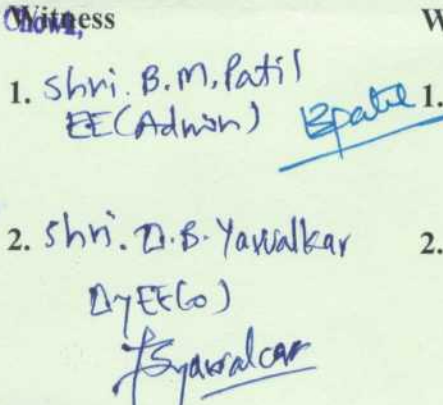 Witness W
1. Shri. B.M. Patil 1.
EE(Admin) Bpatil
2. Shri. D.B. Yawalkar 2.
DyEE(O)